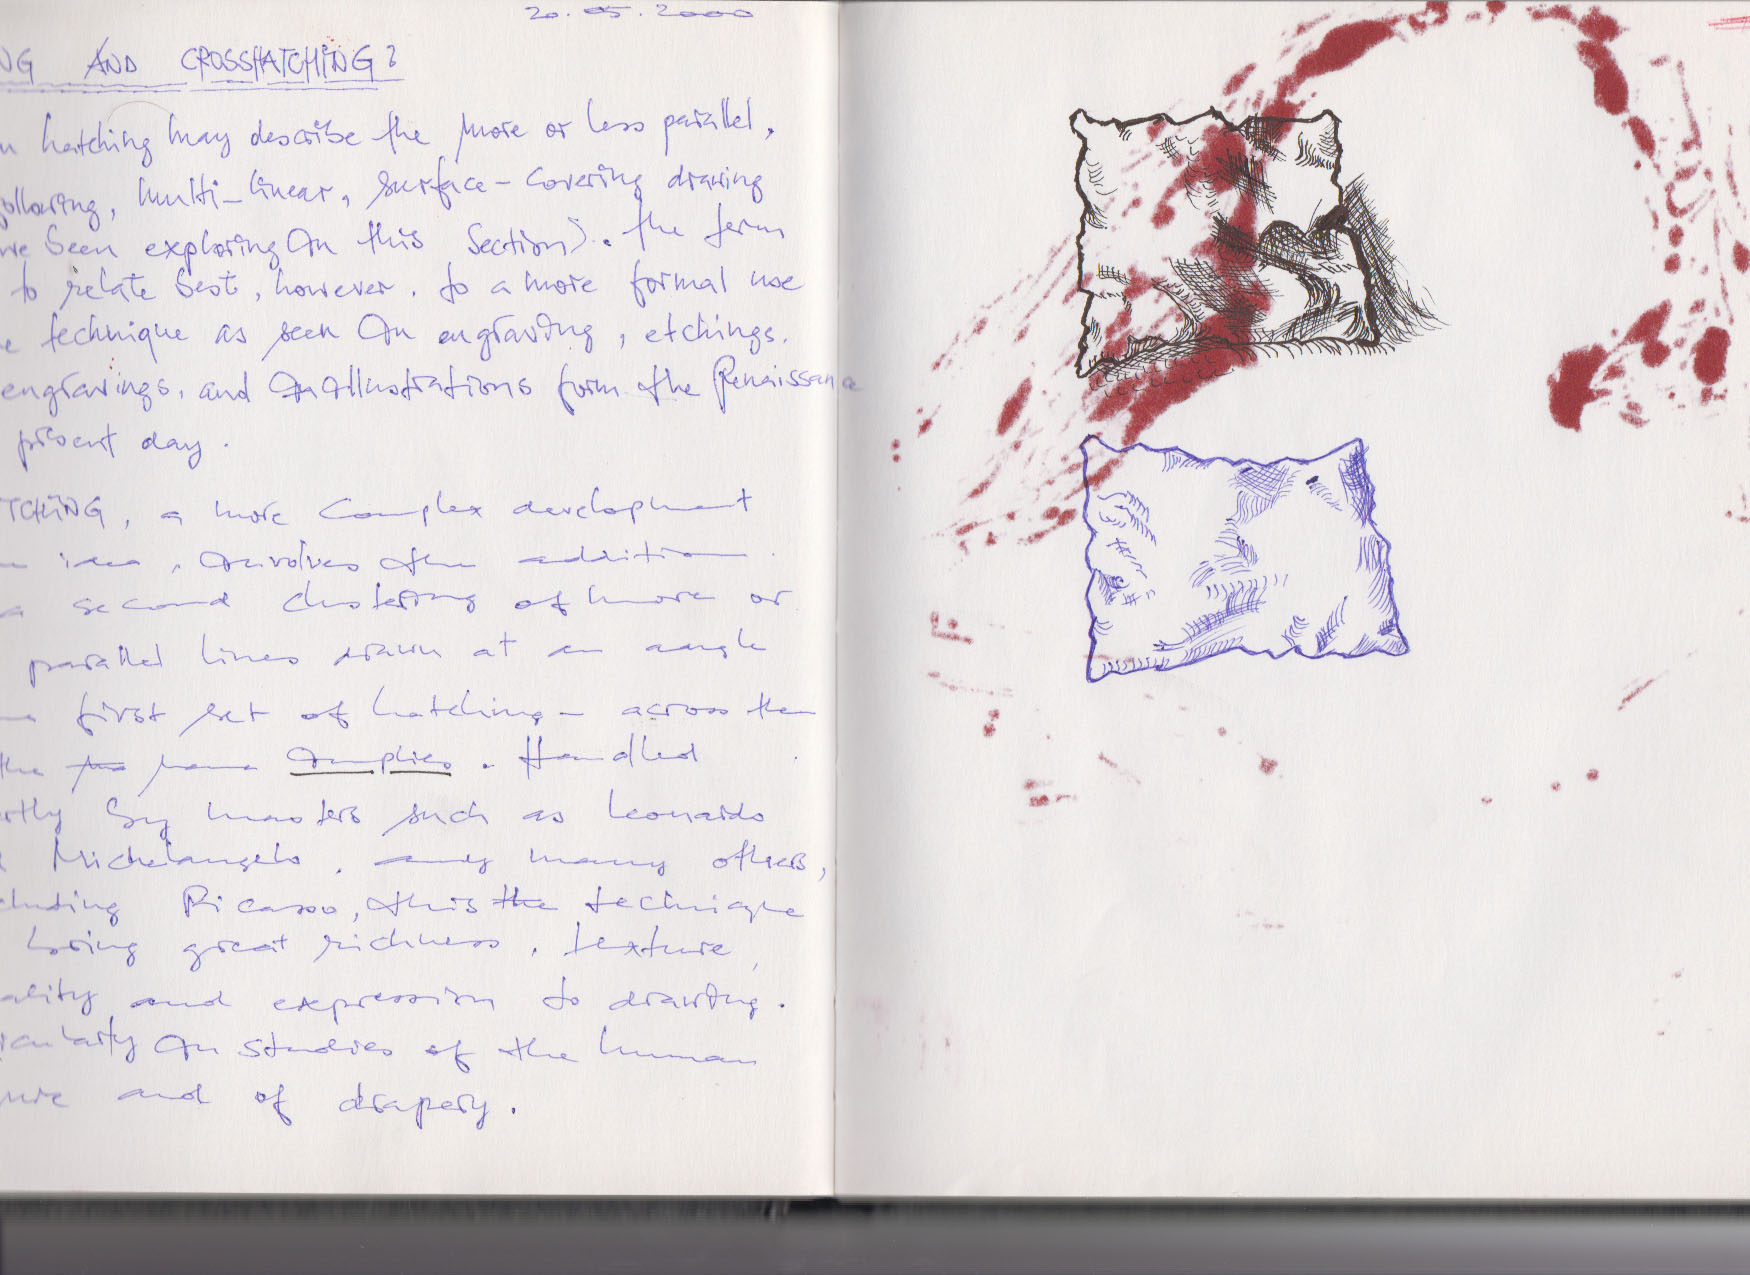 20.05.2000
NG AND CROSSHATCHING?
n hatching may describe the more or less parallel,
ollowing, multi-linear, surface-covering drawing
ve been exploring in this section). The term
to relate best, however, to a more formal use
e technique as seen in engraving, etchings,
engravings, and in illustrations form the Renaissance
present day.
TCHING, a more complex development
idea, involves the addition
a second clustering of more or
parallel lines drawn at an angle
first set of hatching - across them
the name implies. Handled
rtly by masters such as Leonardo
Michelangelo, many others,
cluding Picasso, this the technique
bring great richness, texture,
ality and expression to drawing.
icularly in studies of the human
ure and of drapery.